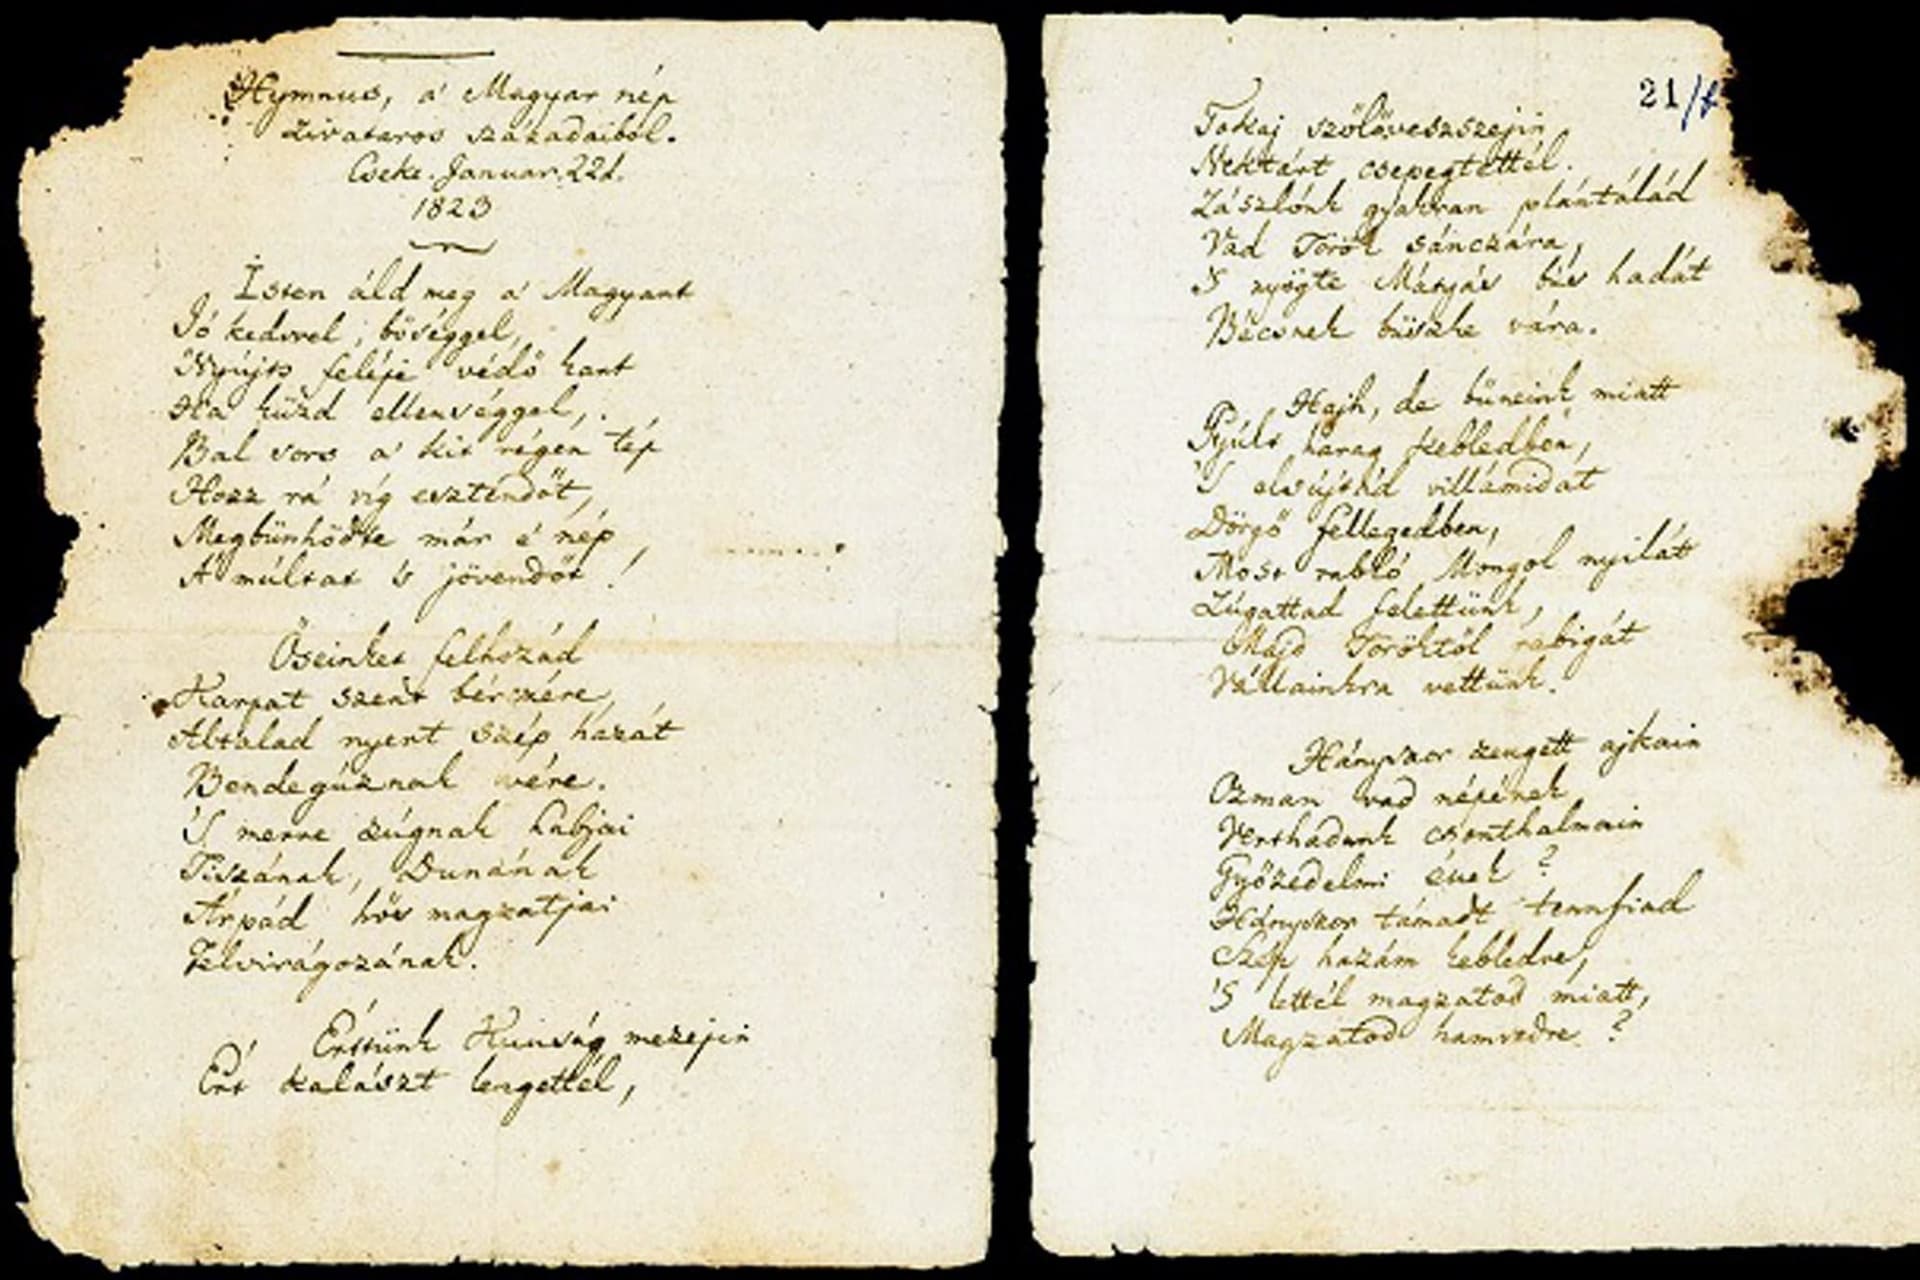 Hymnus, a' Magyar nép
zivataros századaiból.
Cseke. Januar. 22d.
1823
Isten áld meg a' Magyart
Jó kedvvel, bőséggel,
Nyújts feléje védő kart
Ha küzd ellenséggel,
Bal sors a' kit régen tép
Hozz rá víg esztendőt,
Megbünhödte már e' nép
A' múltat 's jövendőt!
Őseinket felhozád
Kárpát szent bérczére,
Általad nyert szép hazát
Bendegúznak vére.
'S merre zúgnak habjai
Tiszának, Dunának
Árpád hős magzatjai
Felvirágozának.
Értünk Kunság mezejin
Ért kalászt lengettél,
21/
Tokaj szőlővesszejin
Nektárt csepegtettél.
Zászlónk gyakran plántálád
Vad Török sánczára,
'S nyögte Mátyás bús hadát
Bécsnek büszke vára.
Hajh, de bűneink miatt
Gyúlt harag kebledben,
'S elsújtád villámidat
Dörgő fellegedben,
Most rabló Mongol nyilát
Zúgattad felettünk,
Majd Töröktől rabigát
Vállainkra vettünk.
Hányszor zengett ajkain
Ozman vad népének
Vert hadunk csonthalmain
Győzedelmi ének?
Hányszor támadt tennfiad
Szép hazám kebledre,
'S lettél magzatod miatt,
Magzatod hamvedre?